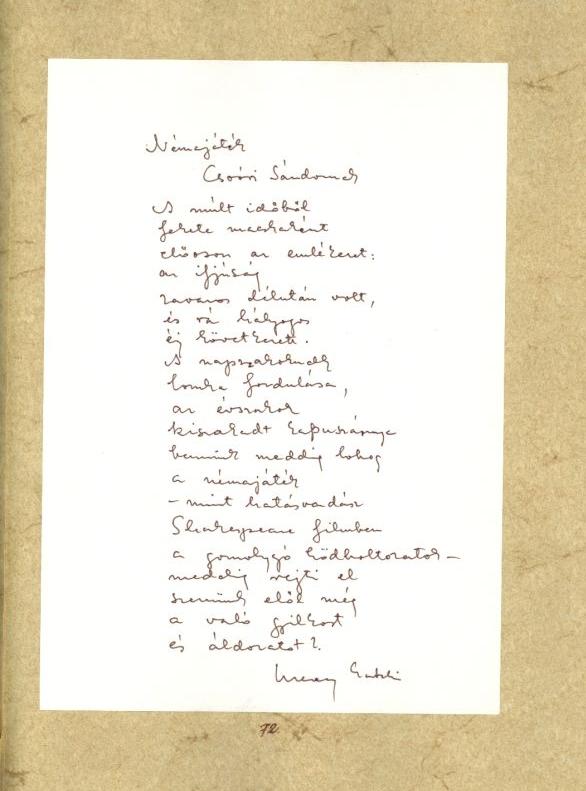 Némajáték
Csoóri Sándornak
A múlt időből
fekete macskaként
előoson az emlékezet:
az ifjúság
zavaros délután volt,
és rá hályogos
éj következett.
A napszakoknak
lomha fordulása,
az évszakok
kiszakadt kapuszárnya
bennünk meddig lobog
a némajáték
– mint hatásvadász
Shakespeare filmben
a gomolygó ködboltozatok –
meddig rejti el
szemünk elől még
a való gyilkost
és áldozatot?
72